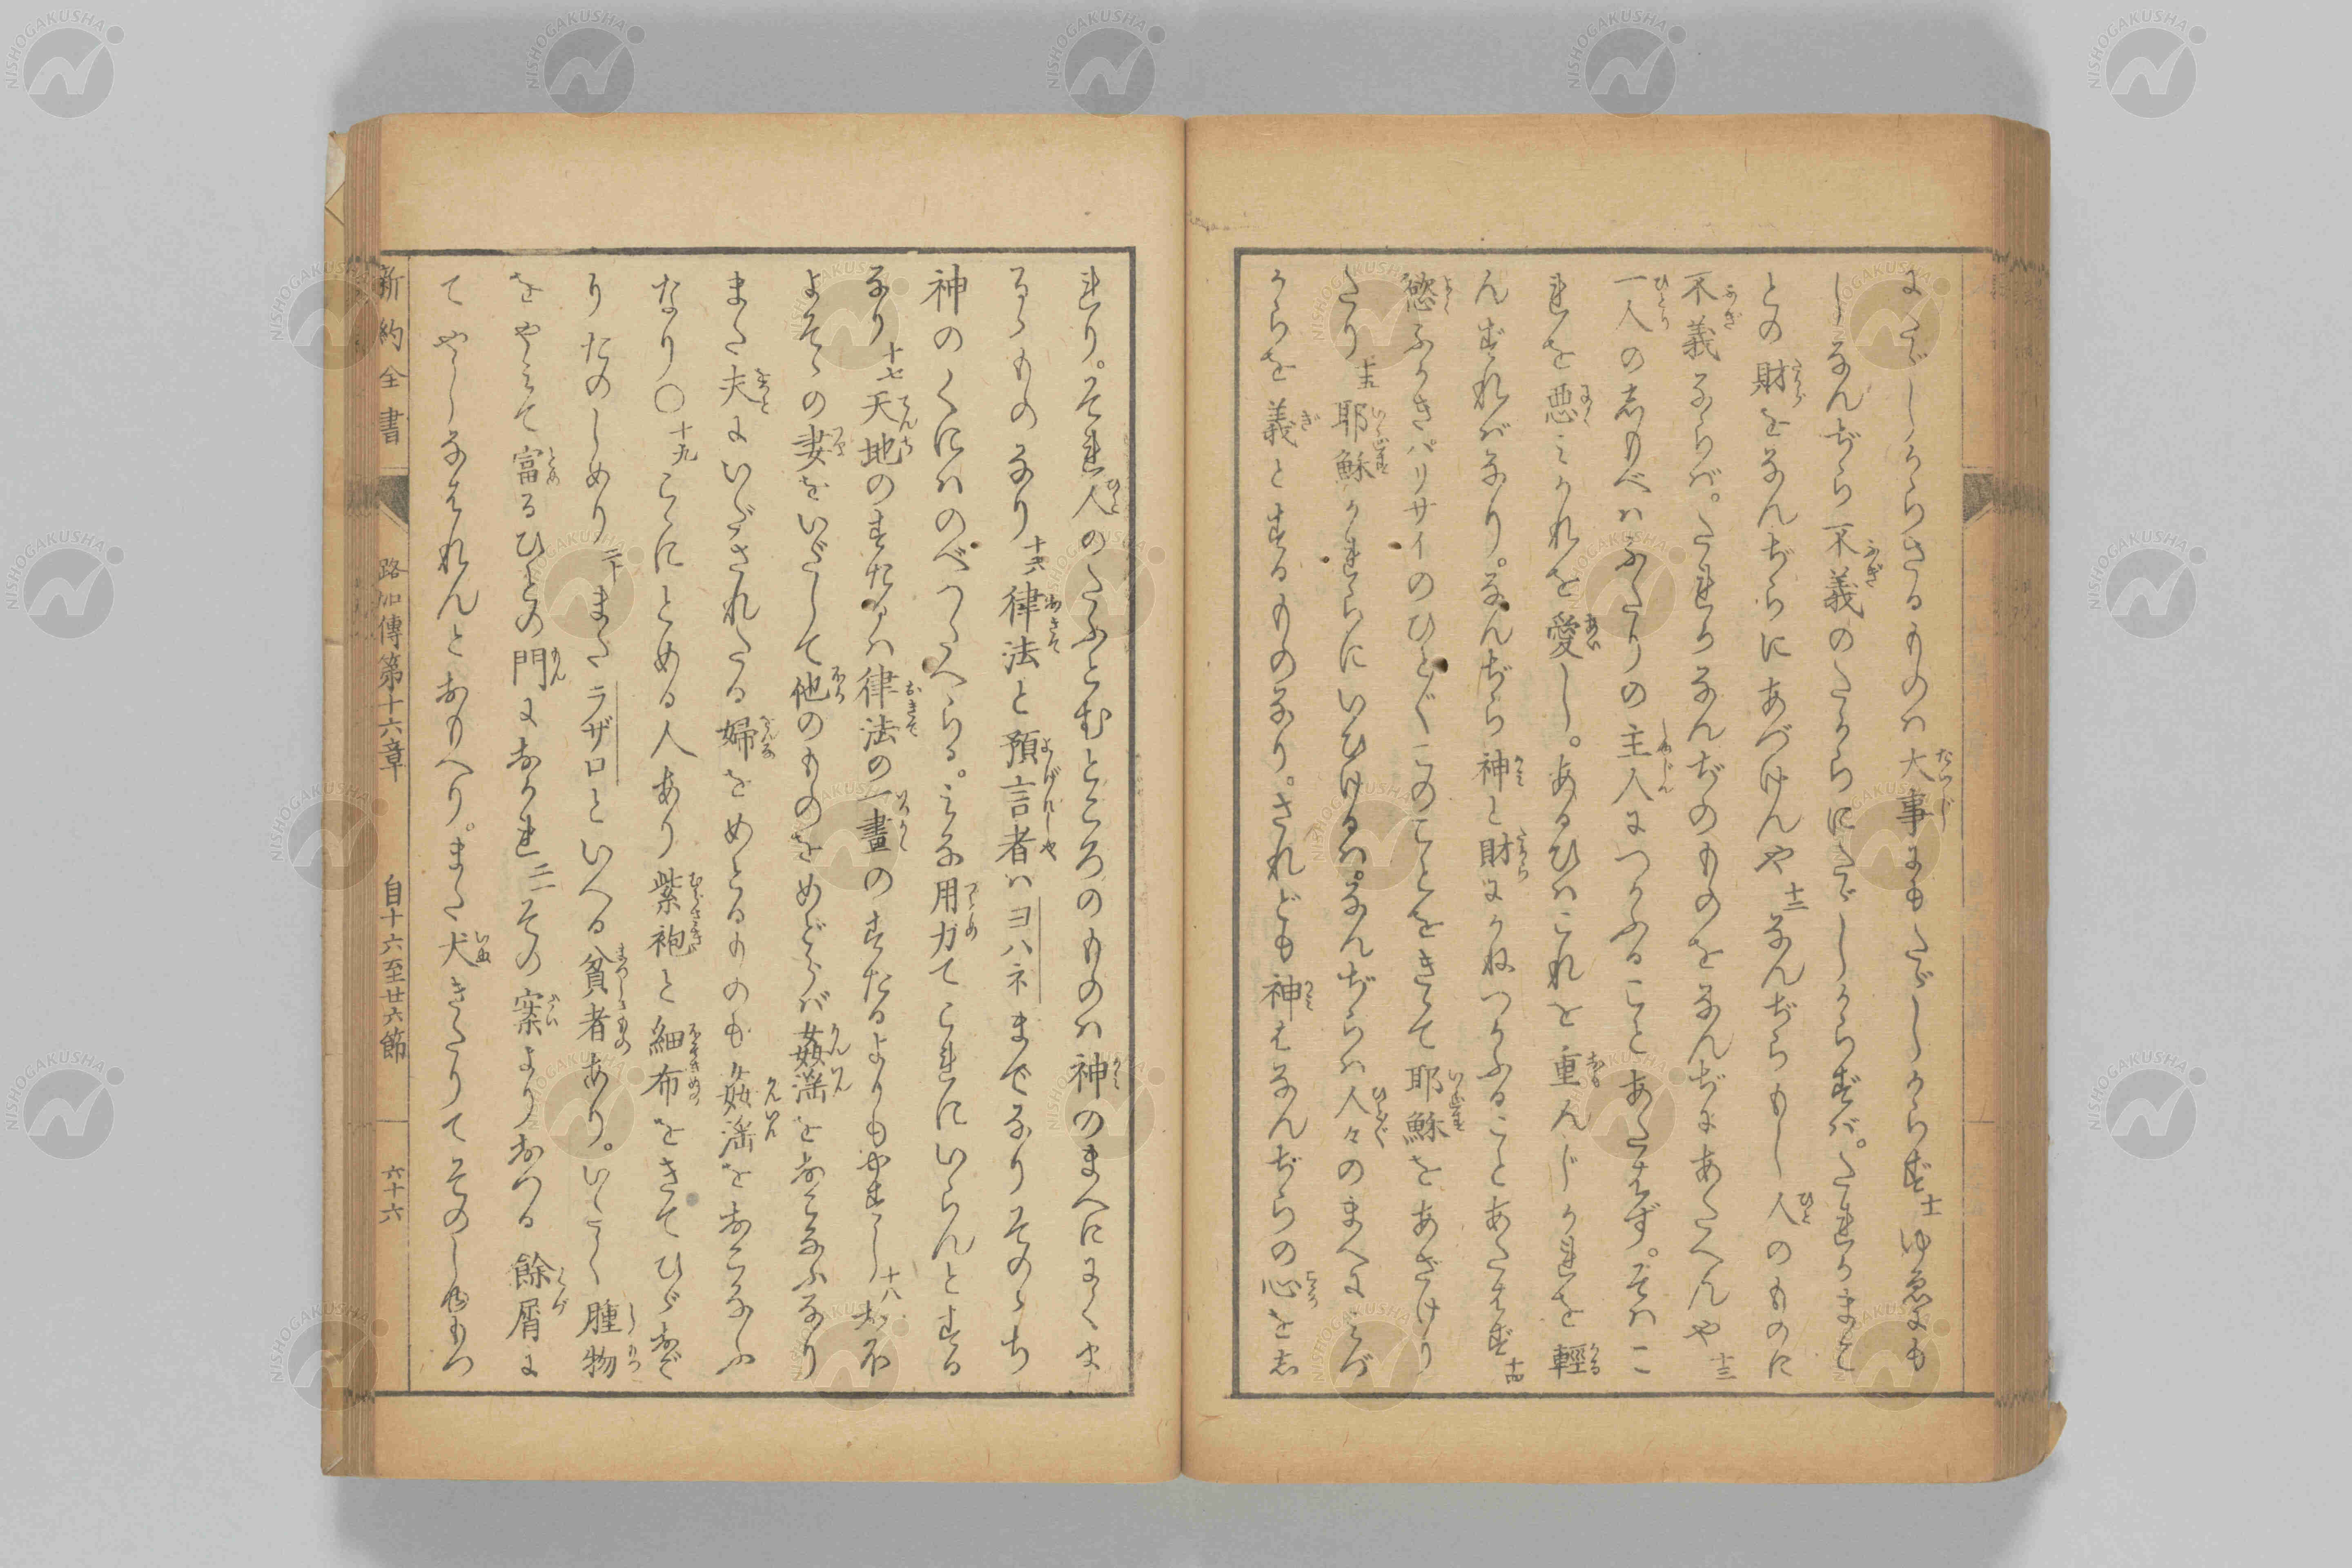 にたゞしからざるものハ大事にもたゞしからず十一ゆゑにも
しなんぢら不義のたからにたゞしからずバ。たれかまこ
との財をなんぢらにあづけんや十二なんぢらもし人のものに
不義ならバ。たれかなんぢのものをなんぢにあたへんや十三
一人の志もべハふたりの主人につかふることあたはず。そハこ
れを悪みかれを愛し。あるひハこれを重んじかれを輕
んずれバなり。なんぢら神と財にかねつかふることあたはず十四
慾ふかきパリサイのひと〴〵このことをきゝて耶穌をあざけり
たり十五耶穌かれらにいひけるハ。なんぢらハ人々のまへにみづ
からを義とするものなり。されども神はなんぢらの心を志
れり。それ人のたふとむところのものハ神のまへににくま
るゝものなり十六律法と預言者ハヨハネまでなりそのゝち
神のくにハのべつたへらる。みな用力てこれにいらんとする
なり十七天地のすたるハ律法の一畫のすたるよりもやすし十八おほ
よそその妻をいだして他のものをめどらバ姦淫をおこなふなり
また夫にいだされたる婦をめとるものも姦淫をおこなふ
なり○十九こゝにとめる人あり紫袍と細布をきてひゞおご
りたのしめり二十またラザロといへる貧者あり。いたく腫物
をやみて富るひとの門におかれ二一その案よりおつる餘屑に
てやしなはれんとおもへり。また犬きたりてそのしゆもつ
新約全書 路加傳第十六章 自十六至廿六節 六十六